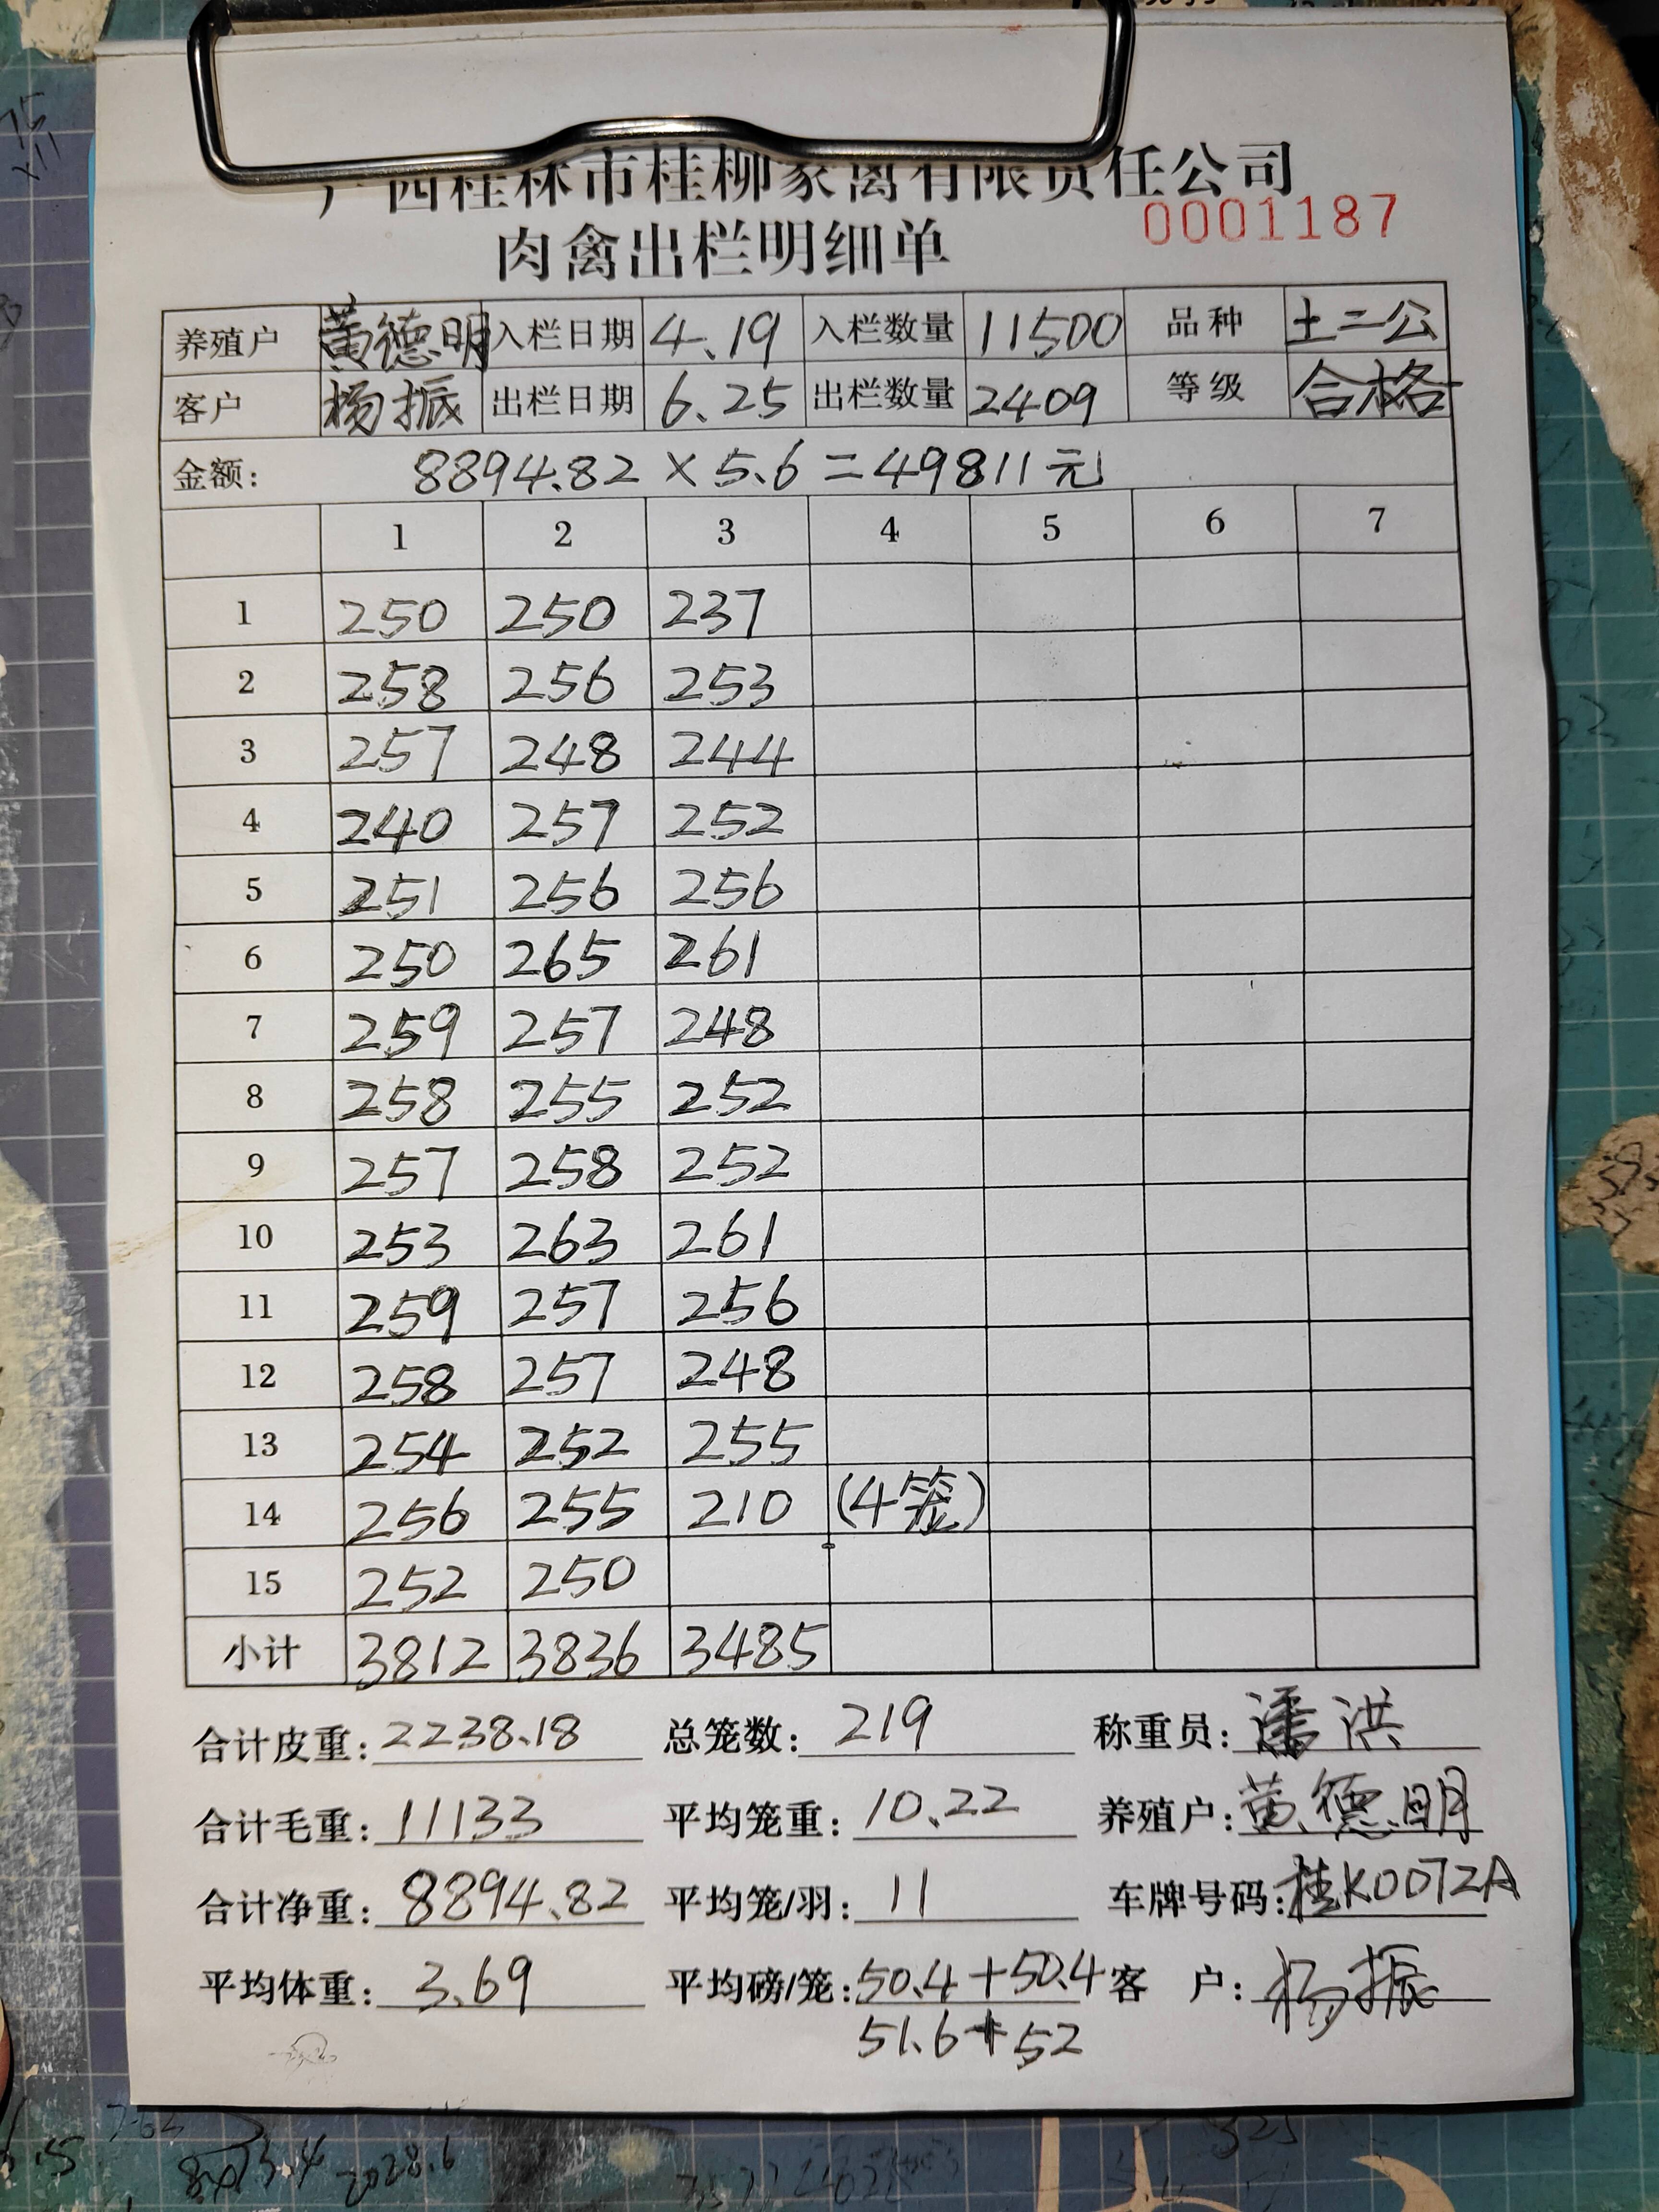 广西桂林市桂柳家禽有限责任公司
0001187
肉禽出栏明细单
养殖户 黄德明 入栏日期 4.19 入栏数量 11500 品种 土二公
客户 杨振 出栏日期 6.25 出栏数量 2409 等级 合格
金额: 8894.82 × 5.6 = 49811元
1 2 3 4 5 6 7
1 250 250 237
2 258 256 253
3 257 248 244
4 240 257 252
5 251 256 256
6 250 265 261
7 259 257 248
8 258 255 252
9 257 258 252
10 253 263 261
11 259 257 256
12 258 257 248
13 254 252 255
14 256 255 210 (4笼)
15 252 250
小计 3812 3836 3485
合计皮重: 2238.18 总笼数: 219 称重员: 潘洪
合计毛重: 11133 平均笼重: 10.22 养殖户: 黄德明
合计净重: 8894.82 平均笼/羽: 11 车牌号码: 桂K0072A
平均体重: 3.69 平均磅/笼: 50.4+50.4 客 户: 杨振
51.6+52
8x13.4 2028.6